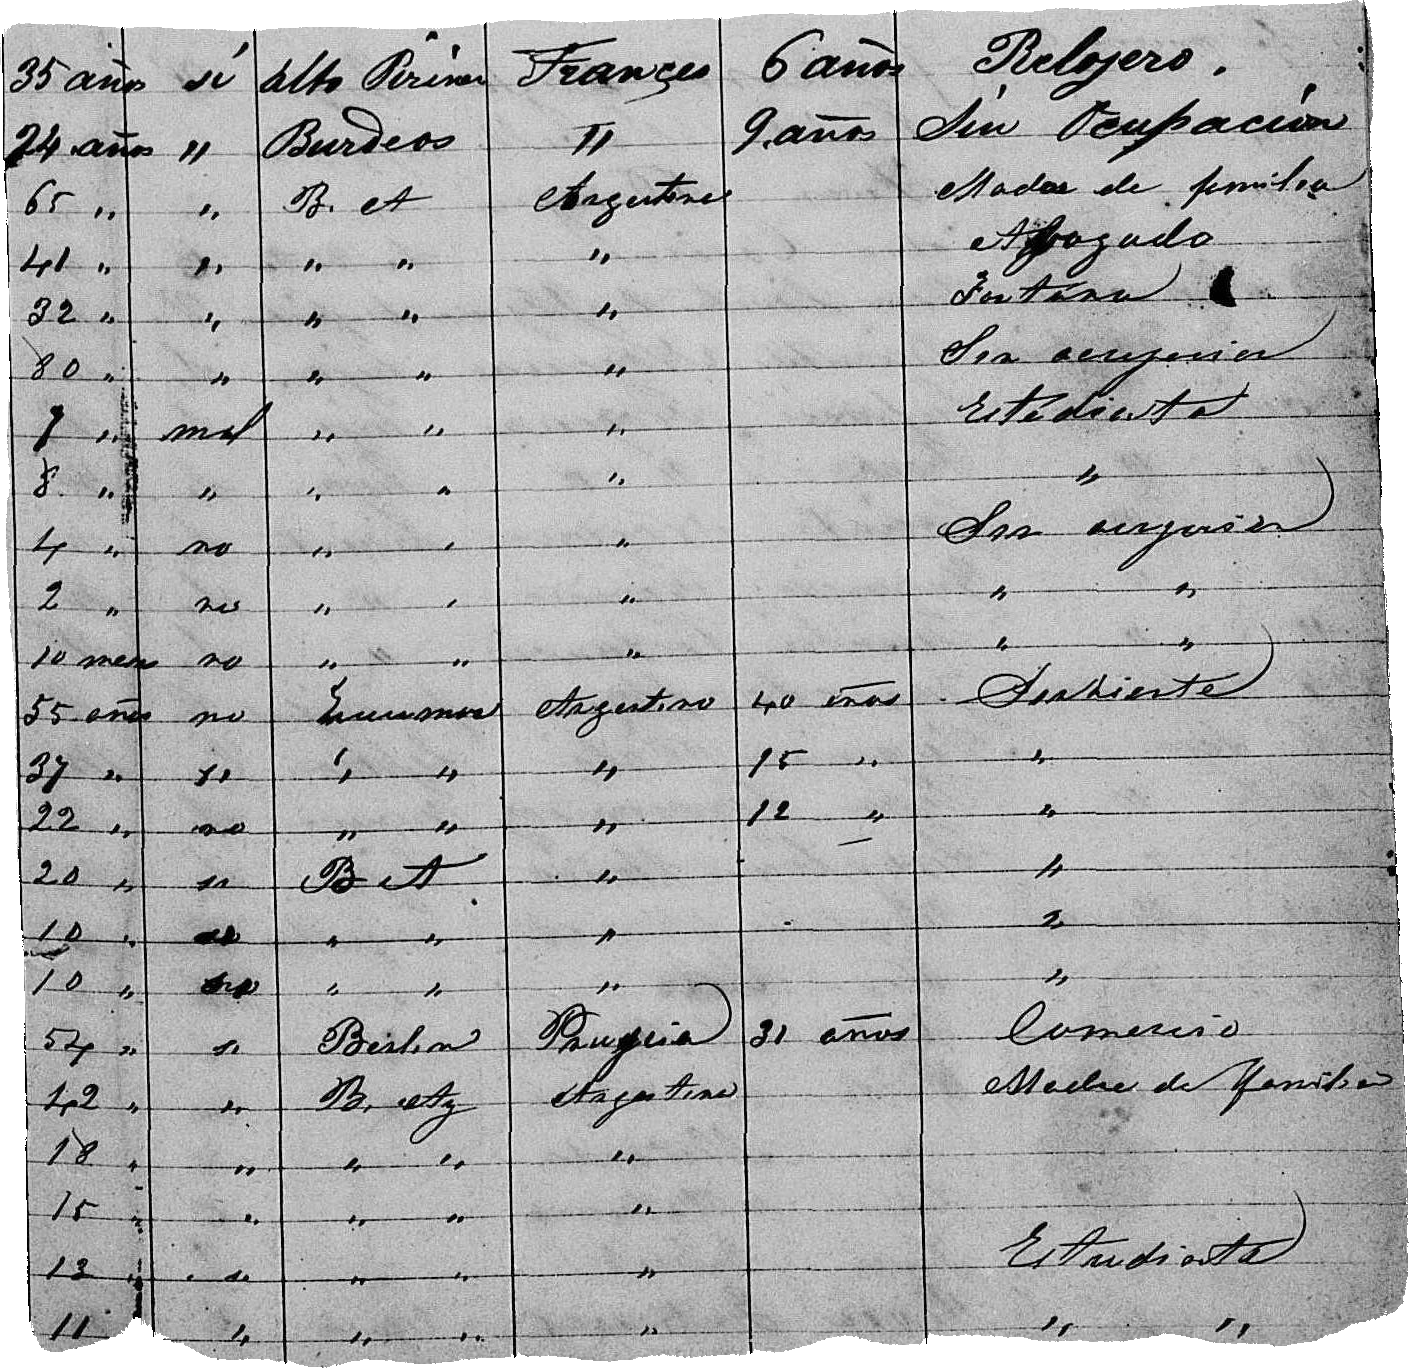 35 años sí Alto Pirineo Frances 6 años Relojero.
24 años " Burdeos " 9 años Sin Ocupación
65 " " B. A Argentina Madre de familia
41 " " " " " Abogado
32 " " " " "
80 " " " " " Sin ocupacion
7 " mal " " " Estudiante
8 " " " " " "
4 " no " " " Sin ocupacion
2 " no " " " " "
10 meses no " " " " "
55 años no Argentino 40 años Sirviente
37 " si " " " 15 " "
22 " no " " " 12 " "
20 " si B A " "
10 " " " " "
10 " no " " " "
54 " si Berlin Prusia 31 años Comercio
42 " " B. Argentina Madre de Familia
18 " " " " "
15 " " " " "
13 " " " " " Estudiante
11 " " " " " "